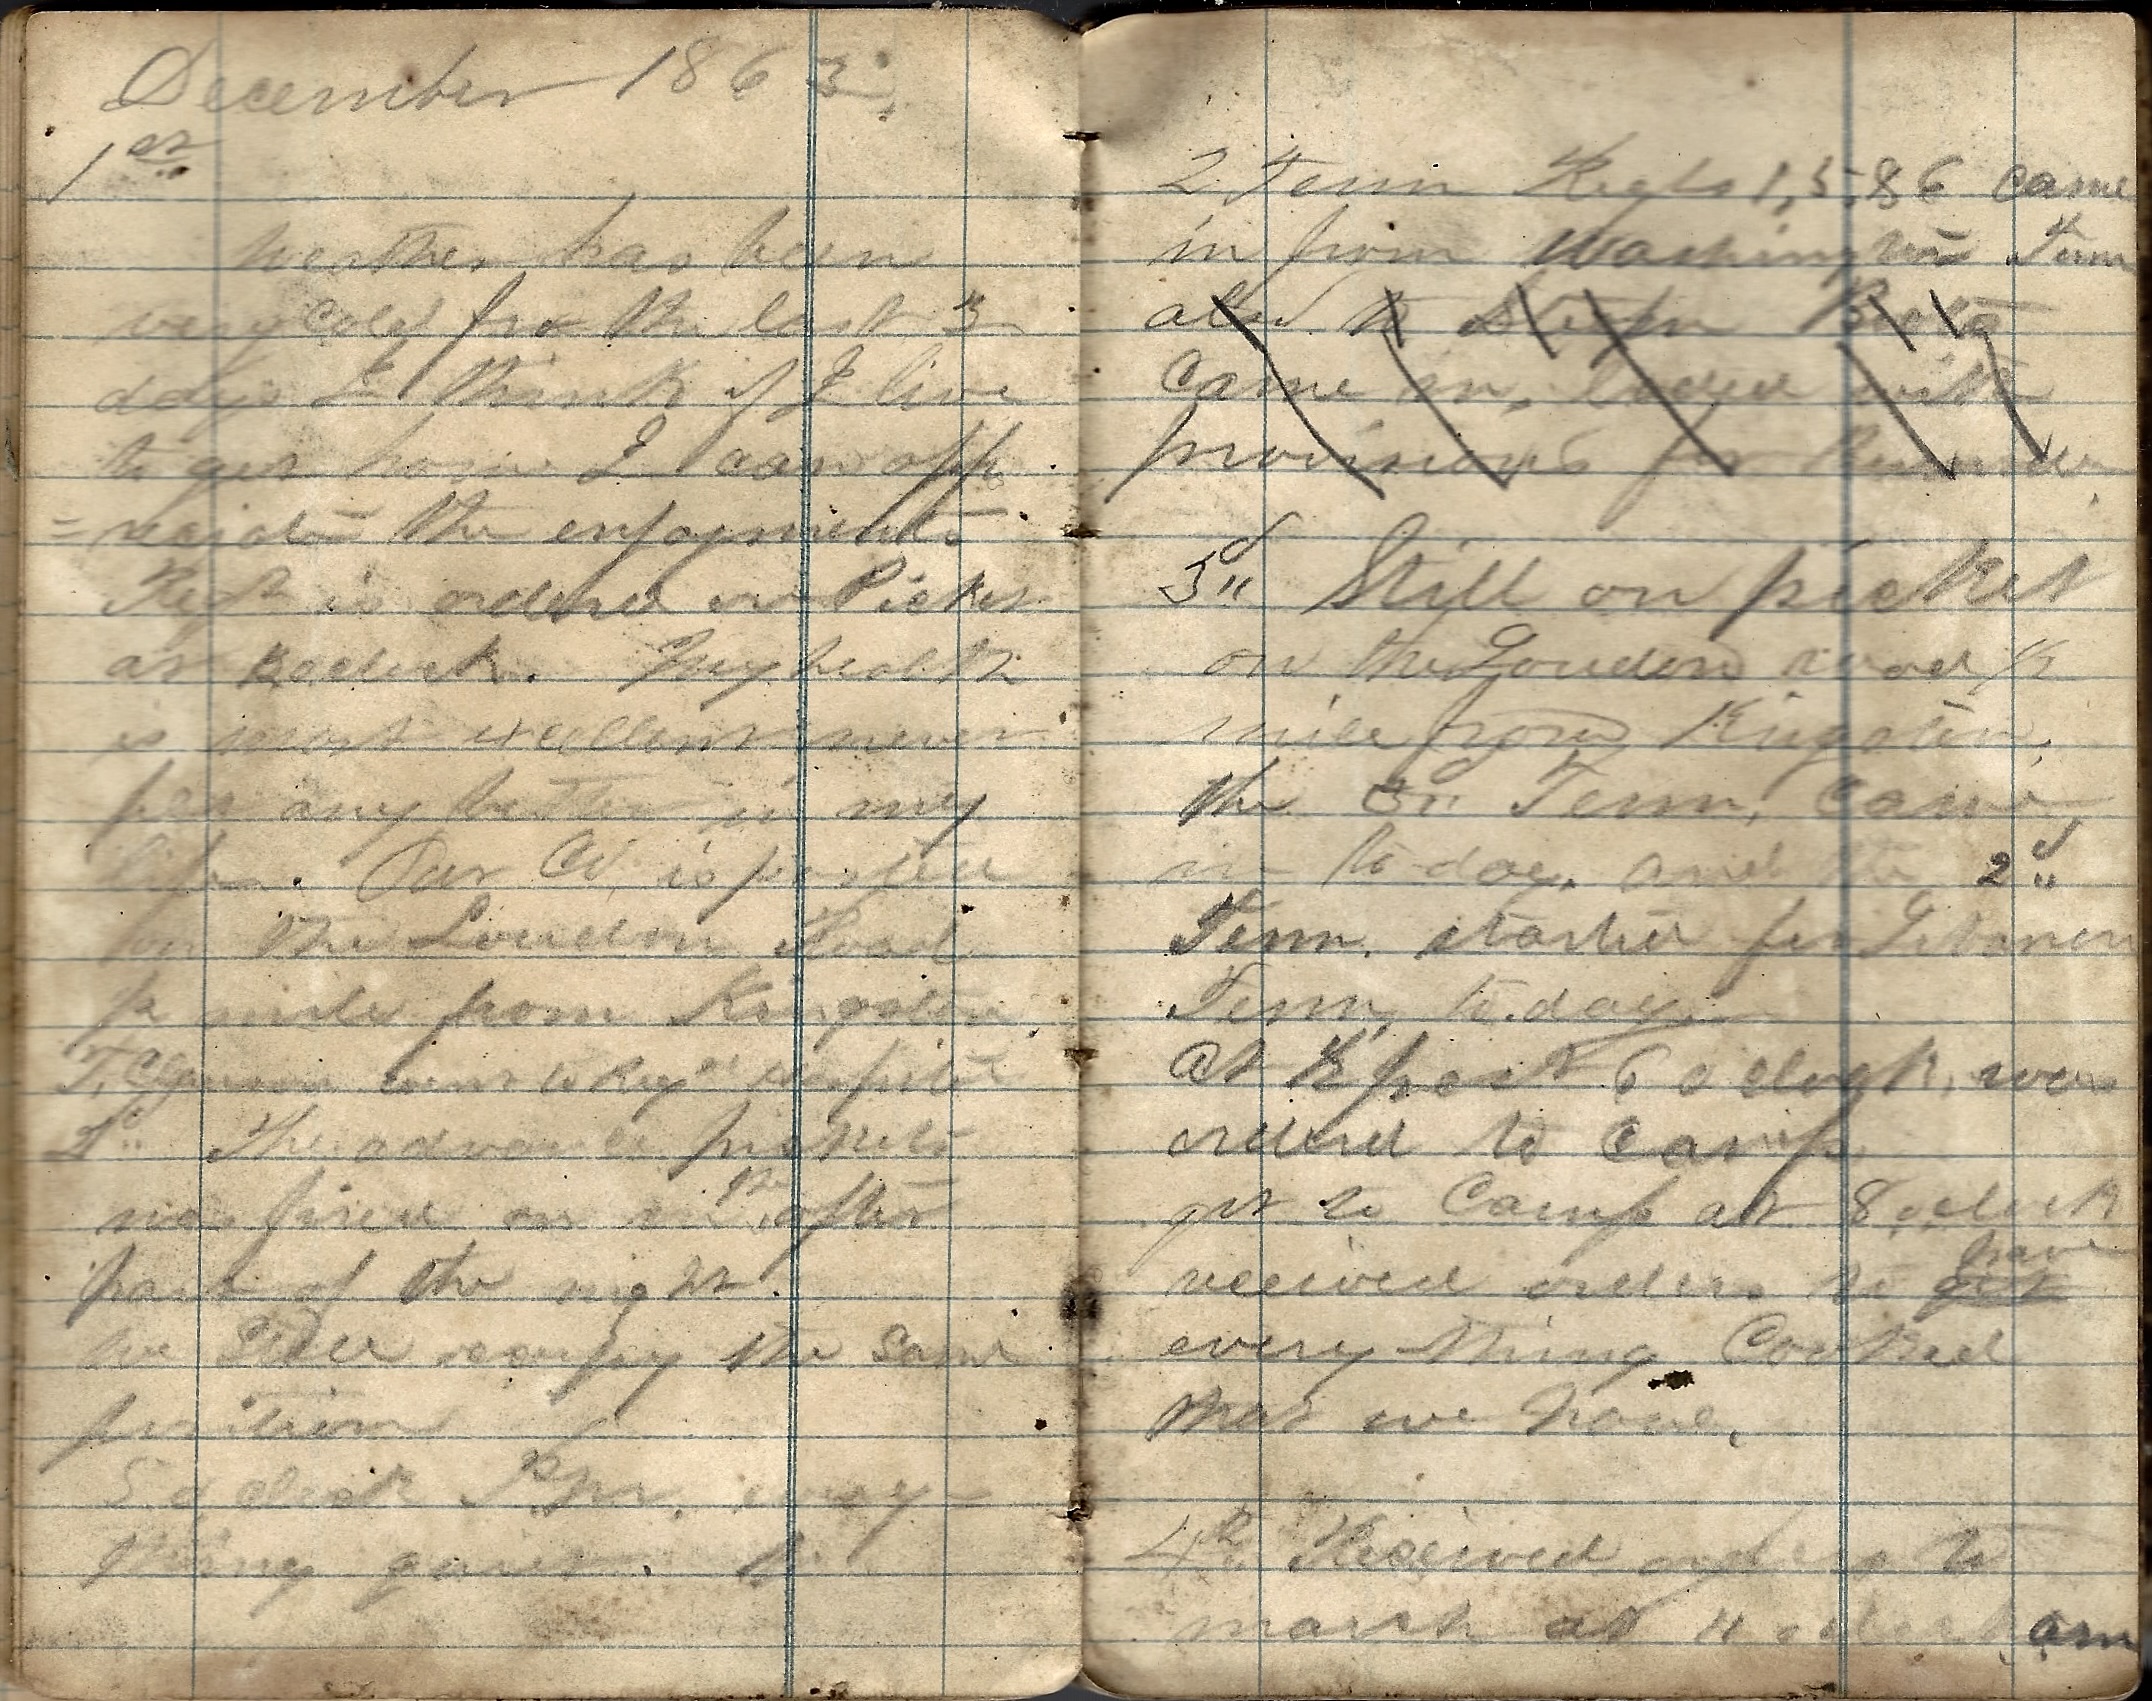 December 1863.
1st
weather has been
very cold for the last 3
days I think if I live
to get home I can app
= reciate the enjoyments.
Regt is ordered on Picket
at o clock. My health
is most excellent never
felt any better in my
life. Our Co. is posted
on the Loudon Road
½ mile from Kingston
went to hospital
2d" The advance pickets
was fired on in the after
part of the night.
we still occupy the same
position
5 o clock P.m. every-
thing quiet.
2 Tenn Regts 1, 5, 8 6 came
in from Washington Tenn
also Steam Boat
came in, loded with
provisions for
3d" Still on picket
on the Loudon road ½
mile from Kingston.
the 3d" Tenn. came
in to day. and the 2d"
Tenn. started for
Tenn, to day.
At ½ past 6 o clock, was
orderd to camp
got to Camp at 8 oclock
received orders to have
every thing Cooked
that we have.
4th Received orders to
march at 4 oclock am